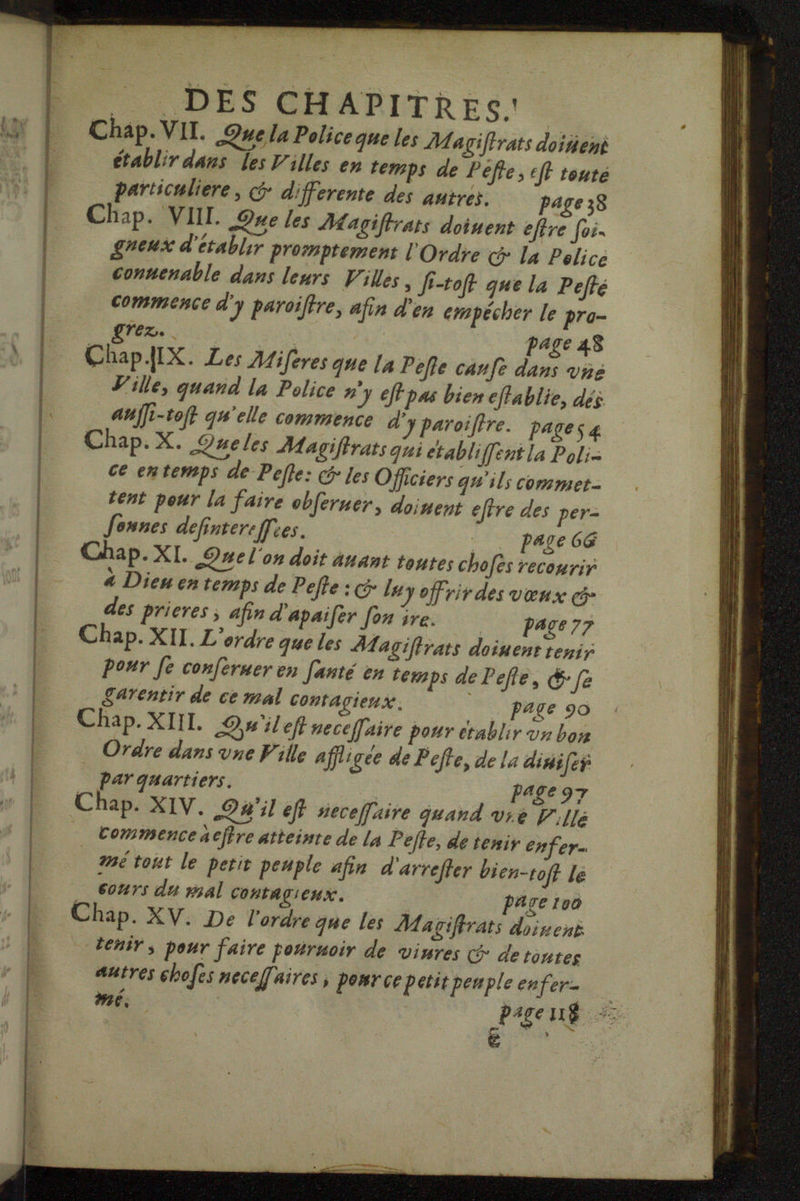 DES CHAPITRES.
Chap. VII. Que la Police que les Magiſtrats doiuent
établir dans les Villes en temps de Peſte, eſt toute
particuliere, & differente des autres. page 38
Chap. VIII. Que les Magiſtrats doiuent eſtre ſoi-
gneux d'établir promptement l'Ordre & la Police
conuenable dans leurs Villes, ſi-toſt que la Peſte
commence d'y paroiſtre, afin d'en empécher le pro-
grez. page 48
Chap. IX. Les Miſeres que la Peſte cauſe dans vne
Ville, quand la Police n'y eſt pas bien eſtablie, dés
auſſi-toſt qu'elle commence d'y paroiſtre. page 54
Chap. X. Que les Magiſtrats qui établiſſent la Poli-
ce en temps de Peſte: & les Officiers qu'ils commet-
tent pour la faire obſeruer, doiuent eſtre des per-
ſonnes deſintereſſées. page 66
Chap. XI. Que l'on doit auant toutes choſes recourir
à Dieu en temps de Peſte: & luy offrir des vœux &
des prieres, afin d'apaiſer ſon ire. page 77
Chap. XII. L'ordre que les Magiſtrats doiuent tenir
pour ſe conſeruer en ſanté en temps de Peſte, & ſe
garentir de ce mal contagieux. page 90
Chap. XIII. Qu'il eſt neceſſaire pour établir vn bon
Ordre dans vne Ville affligée de Peſte, de la diuiſer
par quartiers. page 97
Chap. XIV. Qu'il eſt neceſſaire quand vne Ville
commence à eſtre atteinte de la Peſte, de tenir enfer-
mé tout le petit peuple afin d'arreſter bien-toſt le
cours du mal contagieux. page 100
Chap. XV. De l'ordre que les Magiſtrats doiuent
tenir, pour faire pouruoir de viures & de toutes
autres choſes neceſſaires, pour ce petit peuple enfer-
mé. page 118
é